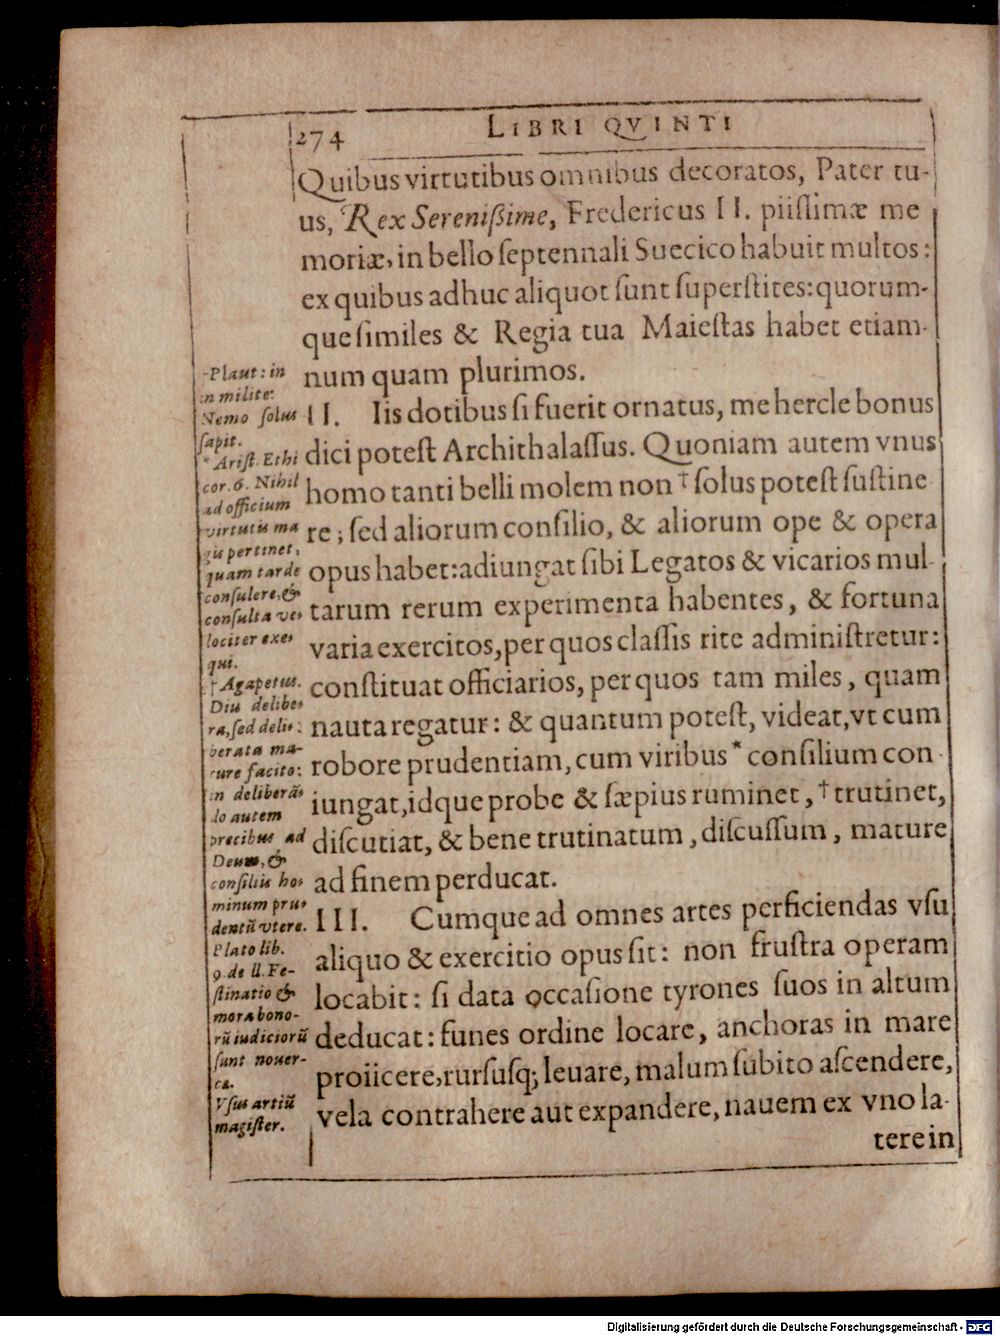 274 LIBRI QVINTI
Quibus virtutibus omnibus decoratos, Pater tu-
us, Rex Sereniſsime, Fredericus II. piiſſimæ me
moriæ, in bello ſeptennali Suecico habuit multos:
ex quibus adhuc aliquot ſunt ſuperſtites: quorum-
que ſimiles & Regia tua Maieſtas habet etiam-
num quam plurimos.
II. Iis dotibus ſi fuerit ornatus, mehercle bonus
dici poteſt Archithalaſſus. Quoniam autem vnus
homo tanti belli molem non † ſolus poteſt ſuſtine
re; ſed aliorum conſilio, & aliorum ope & opera
opus habet: adiungat ſibi Legatos & vicarios mul-
tarum rerum experimenta habentes, & fortuna
varia exercitos, per quos claſſis rite adminiſtretur:
conſtituat officiarios, per quos tam miles, quam
nauta regatur: & quantum poteſt, videat, vt cum
robore prudentiam, cum viribus * conſilium con-
iungat, idque probe & ſæpius ruminet, † trutinet,
diſcutiat, & bene trutinatum, diſcuſſum, mature
ad finem perducat.
III. Cumque ad omnes artes perficiendas vſu
aliquo & exercitio opus ſit: non fruſtra operam
locabit: ſi data occaſione tyrones ſuos in altum
deducat: funes ordine locare, anchoras in mare
proiicere, rurſusq; leuare, malum ſubito aſcendere,
vela contrahere aut expandere, nauem ex vno la-
tere in
Plaut: in
in milite:
Nemo ſolus
ſapit.
* Ariſt. Ethi
cor. 6. Nihil
ad officium
virtutis ma
gis pertinet,
quam tarde
conſulere, &
conſulta ve-
lociter exe-
qui.
† Agapetus.
Diu delibe-
ra, ſed deli-
berata ma-
ture facito:
in deliberā-
do autem
precibus ad
Deum, &
conſiliis ho-
minum pru-
dentū vtere.
Plato lib.
9. de ll. Fe-
ſtinatio &
mora bono-
rū iudiciorū
ſunt nouer-
ca.
Vſus artiū
magiſter.
Digitalisierung gefördert durch die Deutsche Forschungsgemeinschaft - DFG